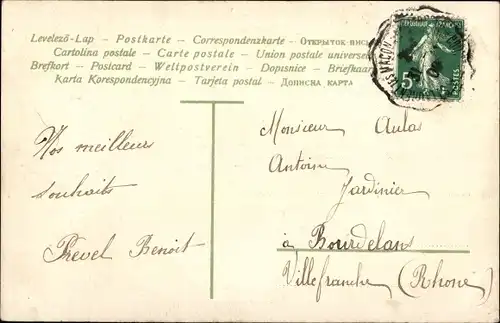 Levelező-Lap - Postkarte - Correspondenzkarte - Открыток-
Cartolina postale - Carte postale - Union postale universe
Brefkort - Postcard - Weltpostverein - Dopisnice - Briefkaar
Karta Korespondencyjna - Tarjeta postal - Дописна карта
5c
POSTES
Vos meilleurs
souhaits
Prevel Benoit
Monsieur Aulas
Antoine
Jardinier
à Bourdelans
Villefranche (Rhone)